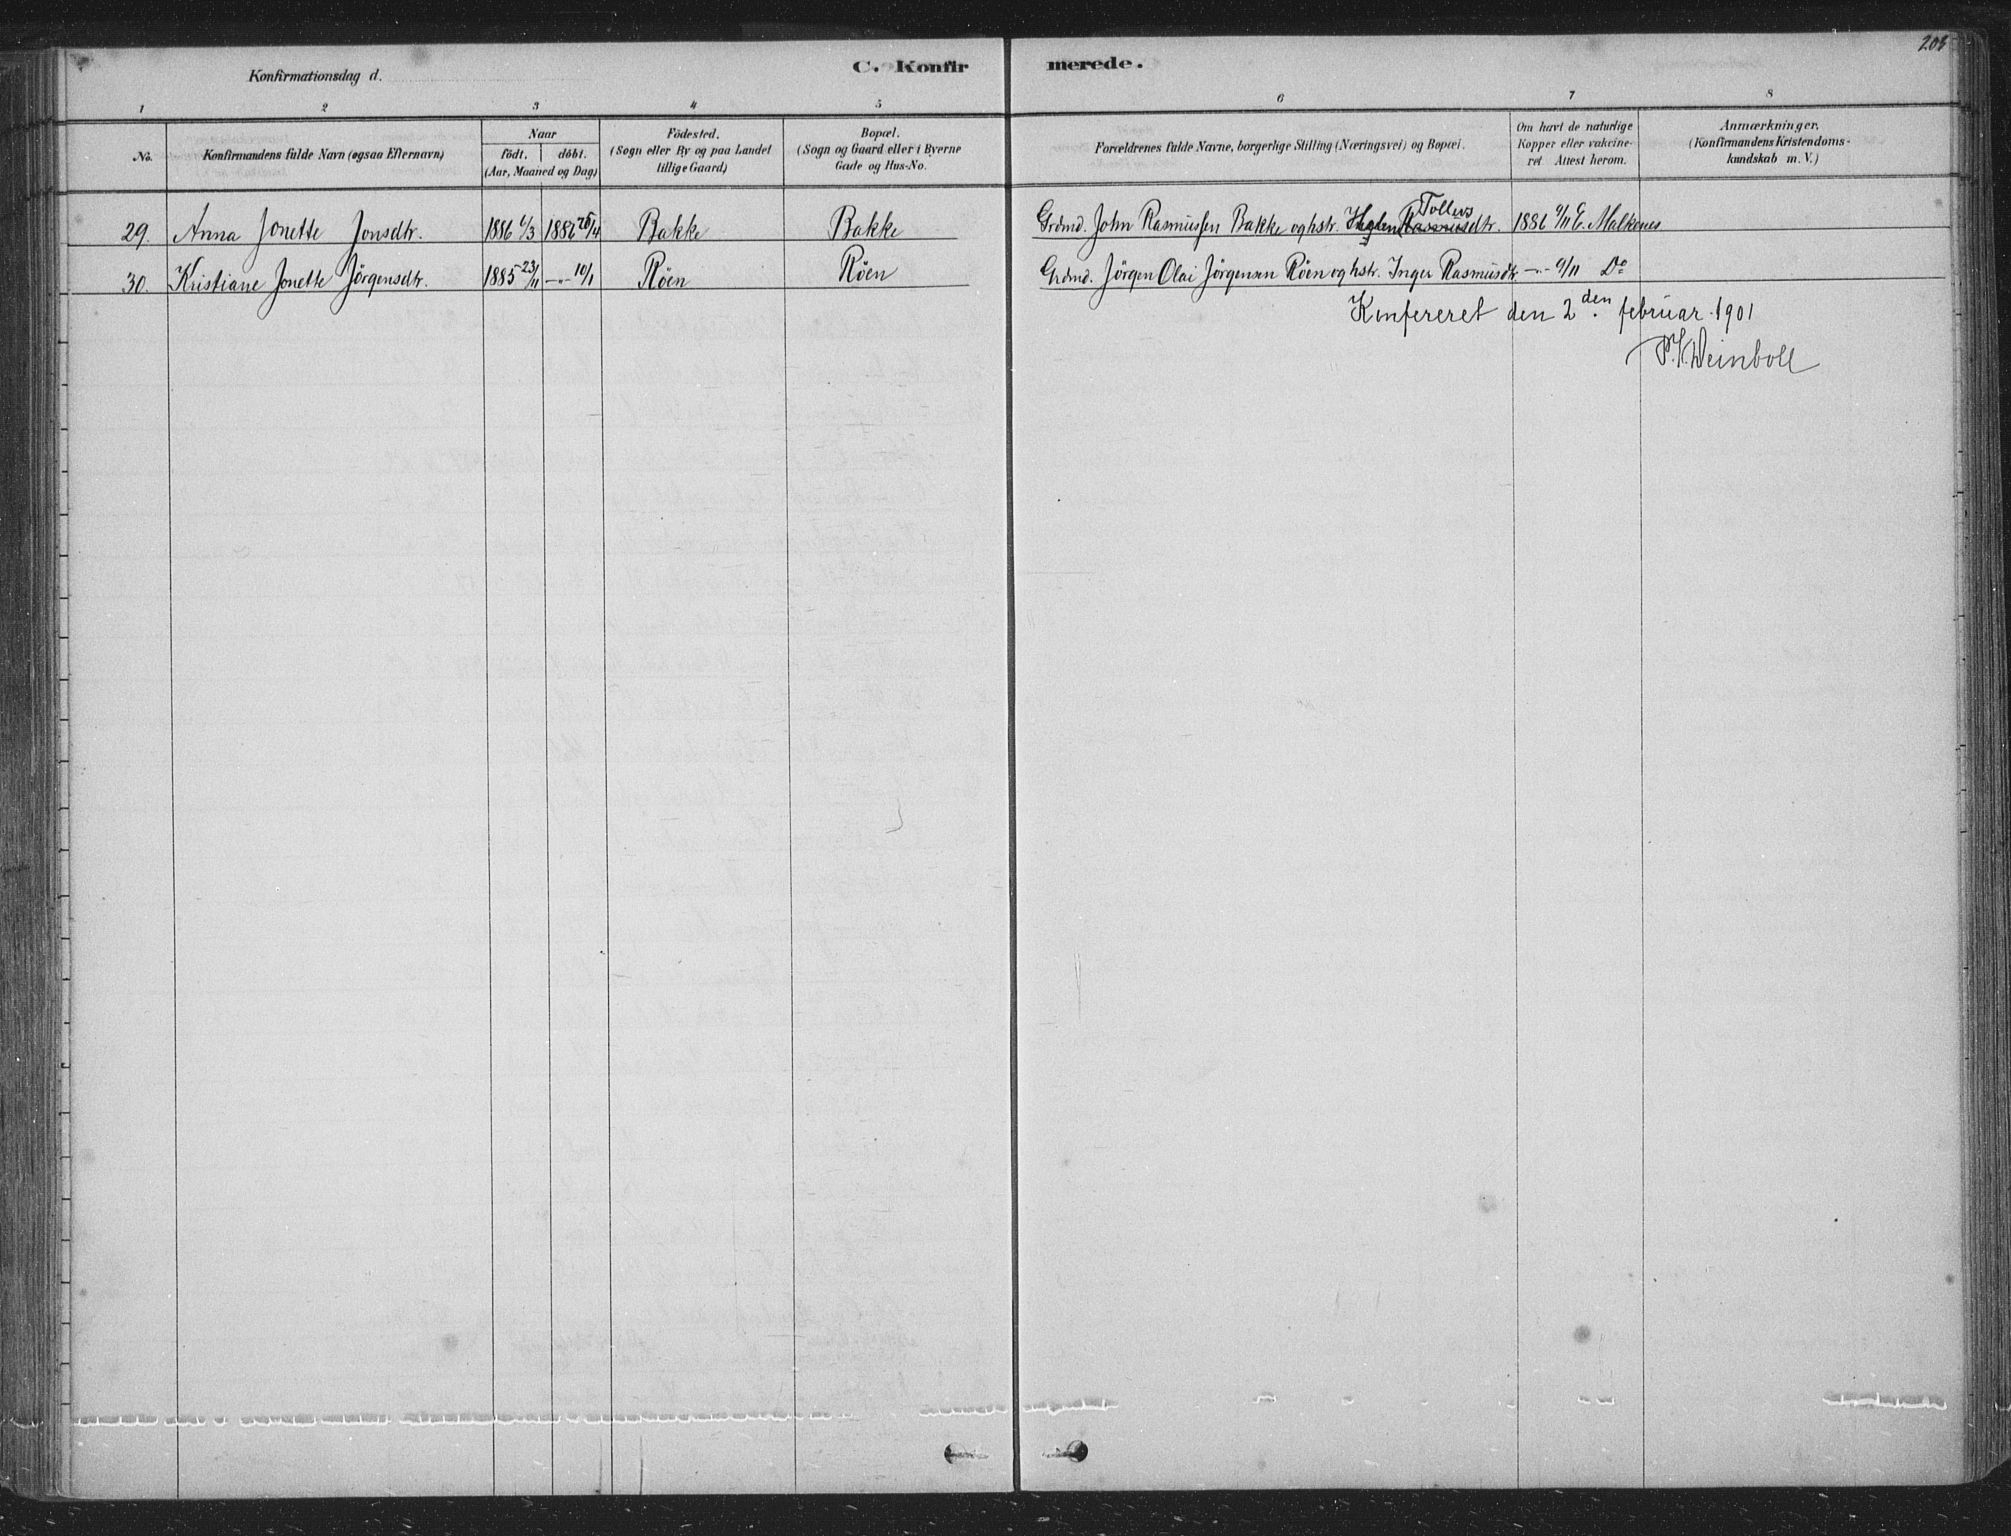 203
Konfirmationsdag d.
C. Konfirmerede.
1 2 3 4 5 6 7 8
No.
Konfirmandens fulde Navn (ogsaa Efternavn)
Naar
födt. döbt.
(Aar, Maaned og Dag)
Födested.
(Sogn eller By og paa Landet
tillige Gaard)
Bopæl.
(Sogn og Gaard eller i Byerne
Gade og Hus-No.
Forældrenes fulde Navne, borgerlige Stilling (Næringsvei) og Bopæl.
Om havt de naturlige
Kopper eller vakcine-
ret Attest herom.
Anmærkninger.
(Konfirmandens Kristendoms-
kundskab m. V.)
Tollevs
29. Anna Jonette Jonsdtr. 1886 6/3 1886 25/4 Bakke Bakke Grdmd. John Rasmussen Bakke og hstr. Rasmusdtr. 1886 6/11 E. Malkenes
30. Kristiane Jonette Jörgensdtr. 1885 23/11 -"- 10/1 Röen Röen Grdmd. Jörgen Olai Jörgensen Röen og hstr. Inger Rasmusdtr. -"- 6/11 Do
Konfereret den 2den februar 1901
Weinboll